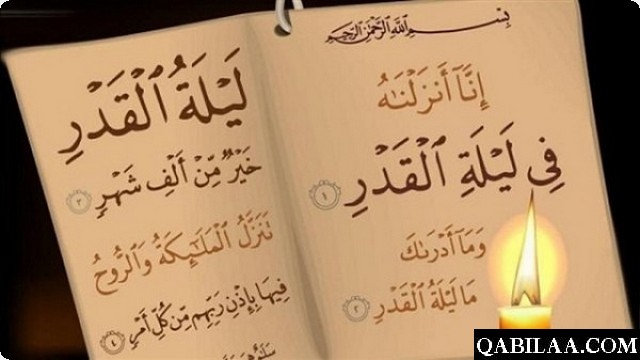 بِسْمِ اللَّهِ الرَّحْمَٰنِ الرَّحِيمِ
إِنَّآ أَنزَلْنَٰهُ
فِي لَيْلَةِ ٱلْقَدْرِ ١
وَمَآ أَدْرَىٰكَ
مَا لَيْلَةُ ٱلْقَدْرِ ٢
لَيْلَةُ ٱلْقَدْرِ
خَيْرٌ مِّنْ أَلْفِ شَهْرٍ ٣
تَنَزَّلُ ٱلْمَلَٰٓئِكَةُ وَٱلرُّوحُ
فِيهَا بِإِذْنِ رَبِّهِم مِّن كُلِّ أَمْرٍ ٤
سَلَٰمٌ
QABILAA.COM